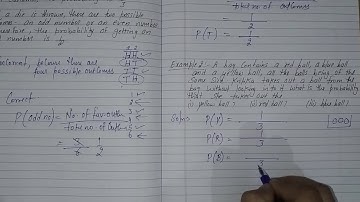 a die is thrown, there are two possible
outcomes - An odd number or an even number
Therefore, the probability of getting an
odd number is 1/2
HH
HT
TH
TT
four possible outcomes
Correct
P(odd no) = No. of favorable
Total no. of Outcomes
= 3/6 = 1/2
1
2
3
4
5
6
Total no. of outcomes
= 1/2
P(T) = 1/2
Example 2 - A bag contains a red ball, a blue ball
and a yellow ball, all the balls being of the
same size. Kritika takes out a ball from the
bag without looking into it. What is the probability
that she takes out the
(i) yellow ball? (ii) red ball? (iii) blue ball?
Soln: P(Y) = 1/3
P(R) = 1/3
P(B) = /3